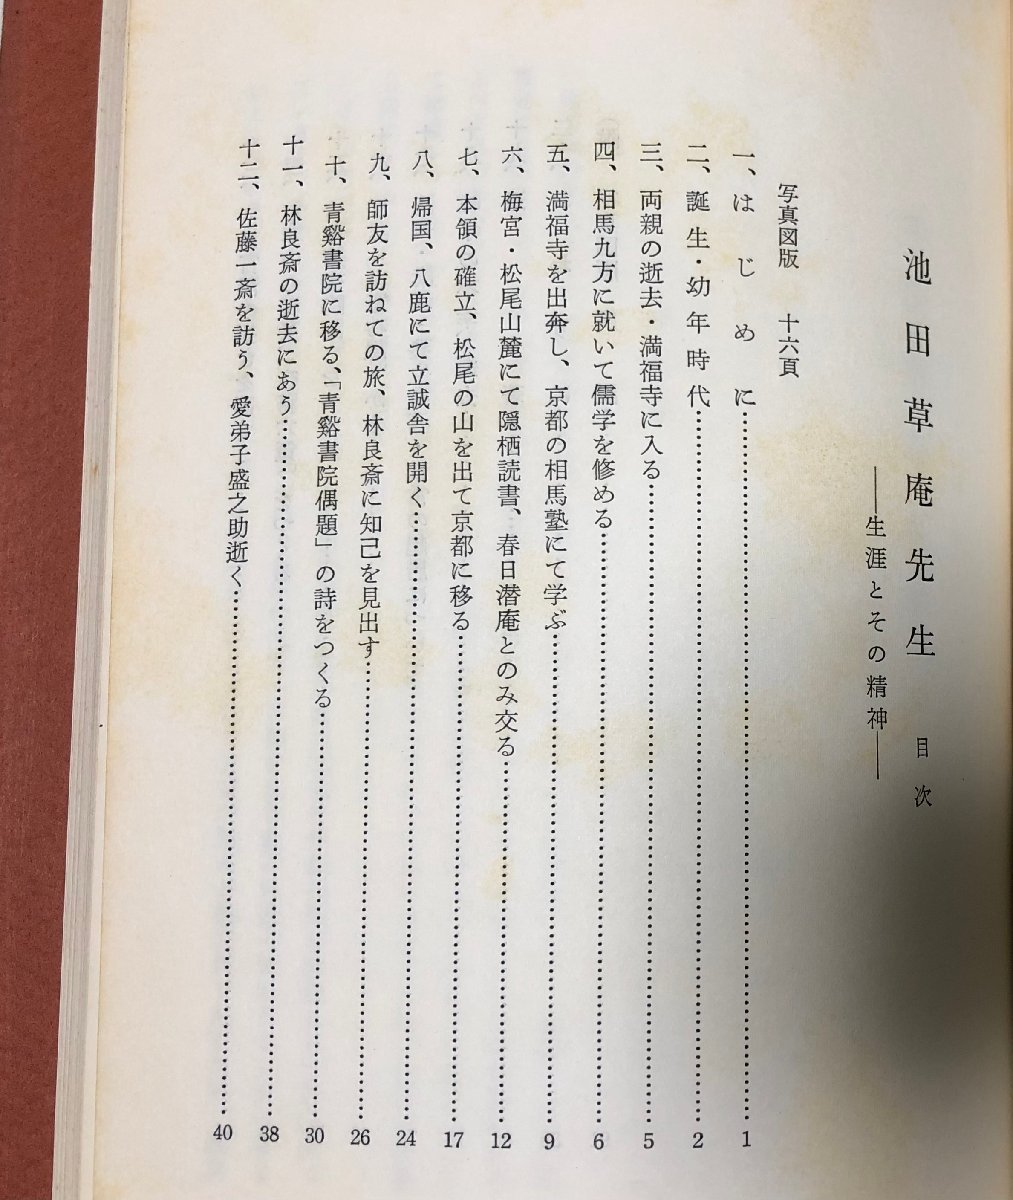 池田草庵先生 目次
――生涯とその精神――
写真図版 十六頁
一、はじめに……………1
二、誕生・幼年時代……………2
三、両親の逝去・満福寺に入る……………5
四、相馬九方に就いて儒学を修める……………6
五、満福寺を出奔し、京都の相馬塾にて学ぶ……………9
六、梅宮・松尾山麓にて隠栖読書、春日潜庵とのみ交る……………12
七、本領の確立、松尾の山を出て京都に移る……………17
八、帰国、八鹿にて立誠舎を開く……………24
九、師友を訪ねての旅、林良斎に知己を見出す……………26
十、青谿書院に移る、「青谿書院偶題」の詩をつくる……………30
十一、林良斎の逝去にあう……………38
十二、佐藤一斎を訪う、愛弟子盛之助逝く……………40